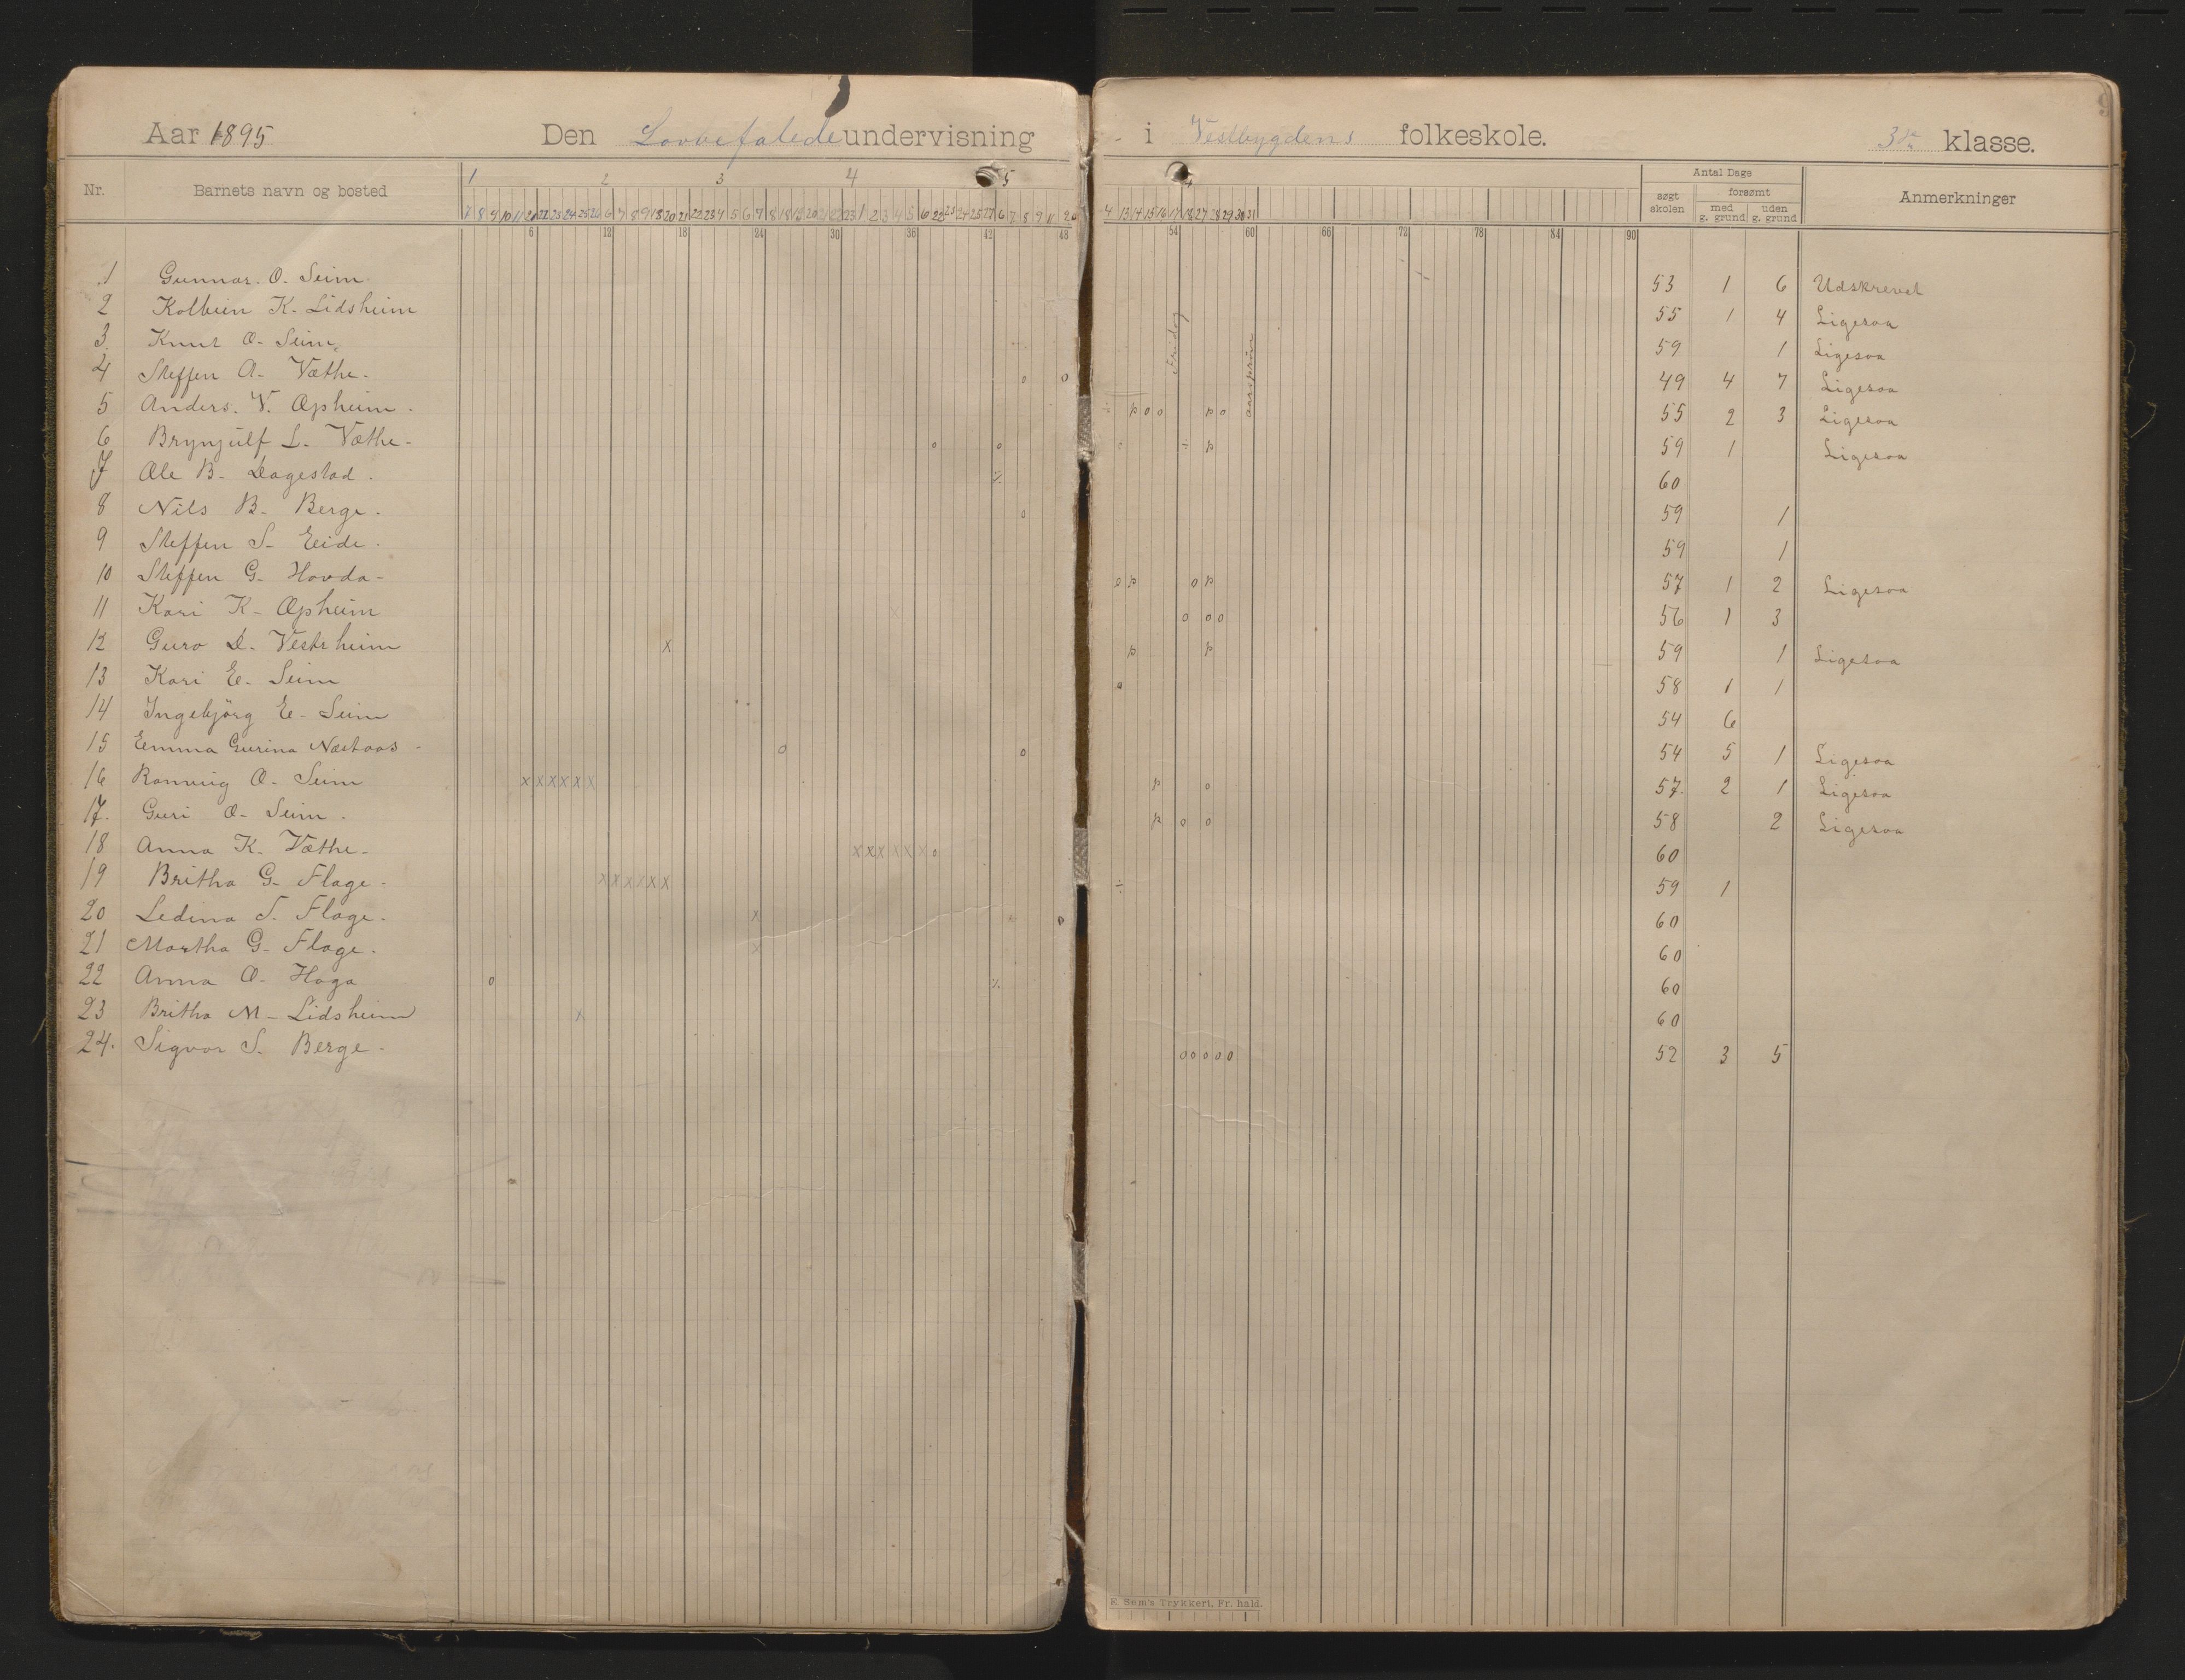 Aar 1895 Den Lovbefalede undervisning i Vestbygdens folkeskole. 3die klasse.
Nr. Barnets navn og bosted Antal Dage Anmerkninger
søgt skolen forsømt
med g. grund uden g. grund
1 2 3 4 5
6 12 18 24 30 36 42 48 54 60 66 72 78 84 90
Fridag
aarsprøve
1 Gunnar. O. Seim 53 1 6 Udskrevet
2 Kolbein K. Lidsheim 55 1 4 Ligesaa
3. Knut O. Seim. 59 1 Ligesaa
4 Steffen A. Væthe. 49 4 7 Ligesaa
5 Anders. V. Opheim. 55 2 3 Ligesaa
6 Brynjulf L. Væthe. 59 1 Ligesaa
7 Ole B. Dagestad. 60
8 Nils B. Berge. 59 1
9 Steffen S. Eide. 59 1
10 Steffen G. Hovda. 57 1 2 Ligesaa
11 Kari K. Opheim 56 1 3
12 Guro D. Vestrheim 59 1 Ligesaa
13 Kari E. Seim 58 1 1
14 Ingebjörg E. Seim 54 6
15 Emma Gurina Næstaas 54 5 1 Ligesaa
16 Ranveig O. Seim 57. 2 1 Ligesaa
17. Guri O. Seim. 58 2 Ligesaa
18 Anna K. Væthe. 60
19 Britha G. Flage. 59 1
20 Ledina S. Flage. 60
21 Martha G. Flage. 60
22 Anna O. Haga 60
23 Britha M. Lidsheim 60
24. Sigvor S. Berge. 52 3 5
E. Sem's Trykkeri, Fr. hald.